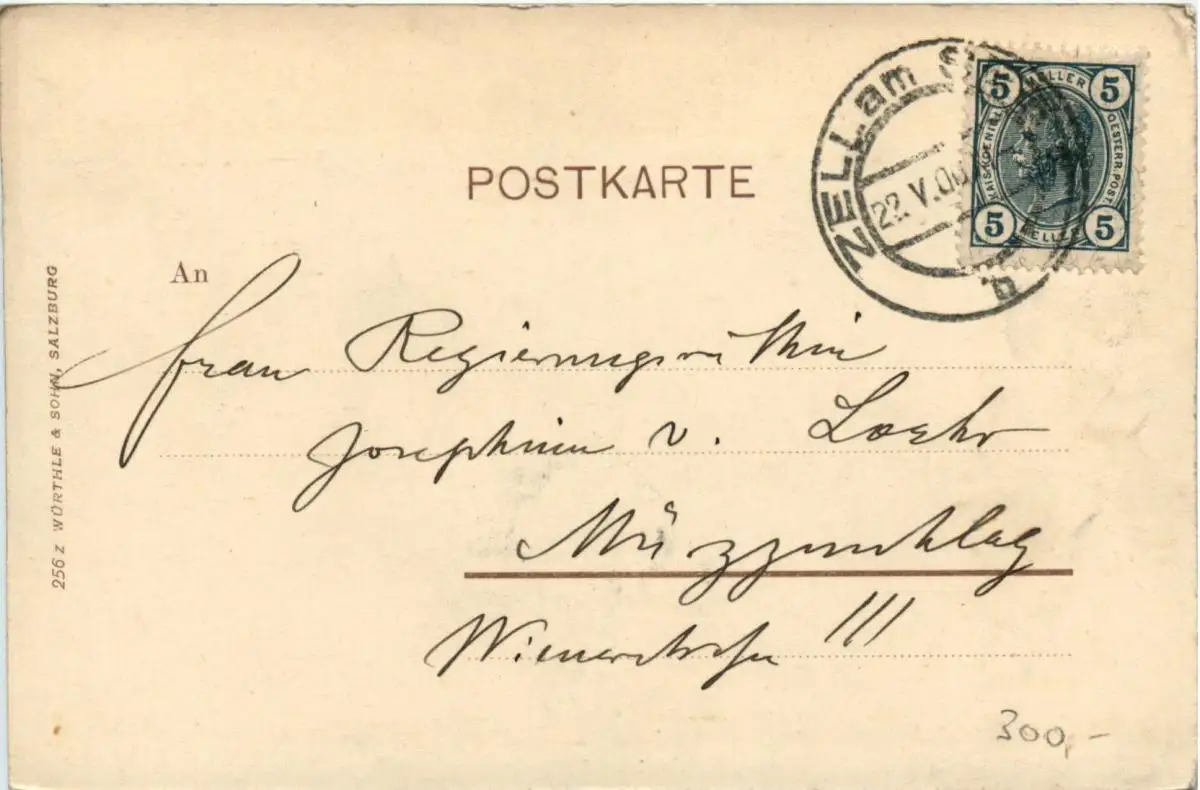 POSTKARTE
ZELL am
22.V.06
b
5 HELLER 5
KAIS. KOENIGL. OESTERR. POST.
5 HELLER 5
An
Frau Regierungsräthin
Josephine v. Loehr
Mürzzuschlag
Wienerstrasse III
256 Z WÜRTHLE & SOHN, SALZBURG
300,-